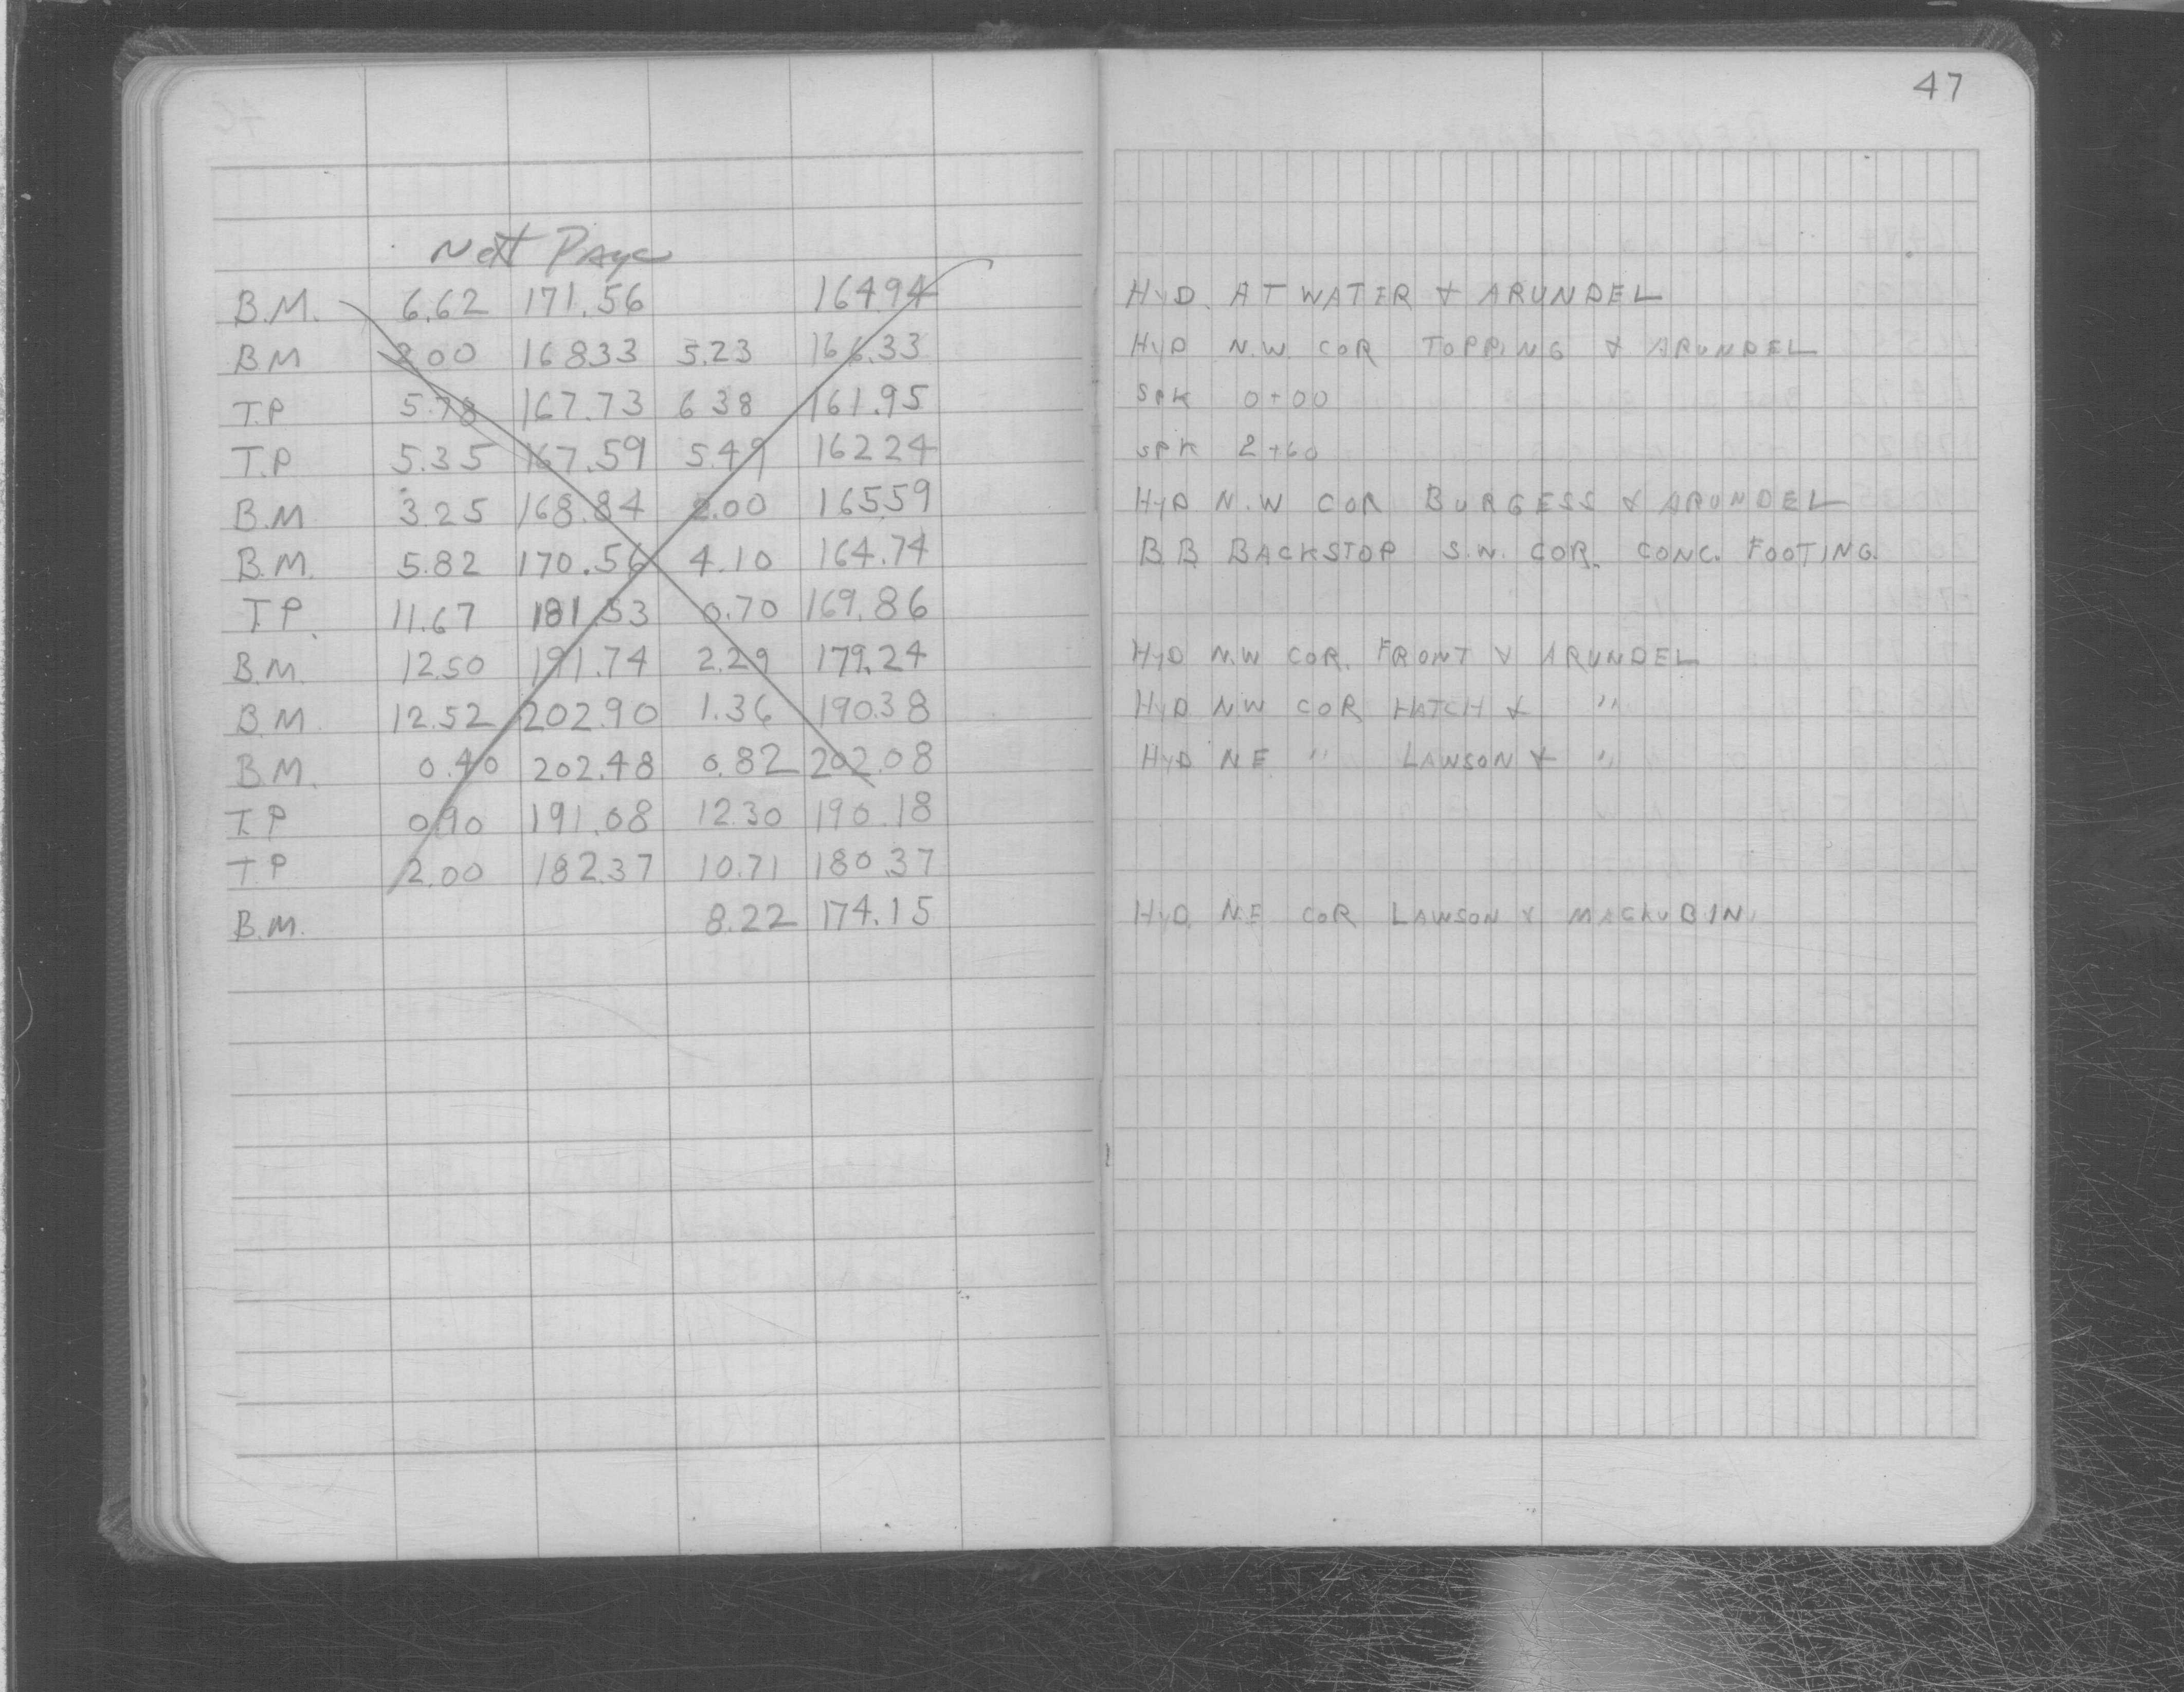 47
Next Page
B.M. 6.62 171.56 164.94 HYD. ATWATER & ARUNDEL
B.M 2.00 168.33 5.23 166.33 HYD N.W. COR TOPPING & ARUNDEL
T.P 5.78 167.73 6 38 161.95 SPK 0+00
T.P 5.35 167.59 5.49 162 24 SPK 2+60
B.M 3.25 168.84 2.00 165.59 HYD N.W COR BURGESS & ARUNDEL
B.M. 5.82 170.56 4.10 164.74 B.B. BACKSTOP S.W. COR. CONC. FOOTING.
T.P. 11.67 181.53 0.70 169.86
B.M. 12.50 191.74 2.29 179.24 HYD N.W COR. FRONT & ARUNDEL
B.M. 12.52 202.90 1.36 190.38 HYD NW COR HATCH & "
B.M. 0.40 202.48 0.82 202.08 HYD NE " LAWSON & "
T.P 0.90 191.08 12.30 190.18
T.P 2.00 182.37 10.71 180.37
B.M. 8.22 174.15 HYD. N.E COR LAWSON & MACKUBIN